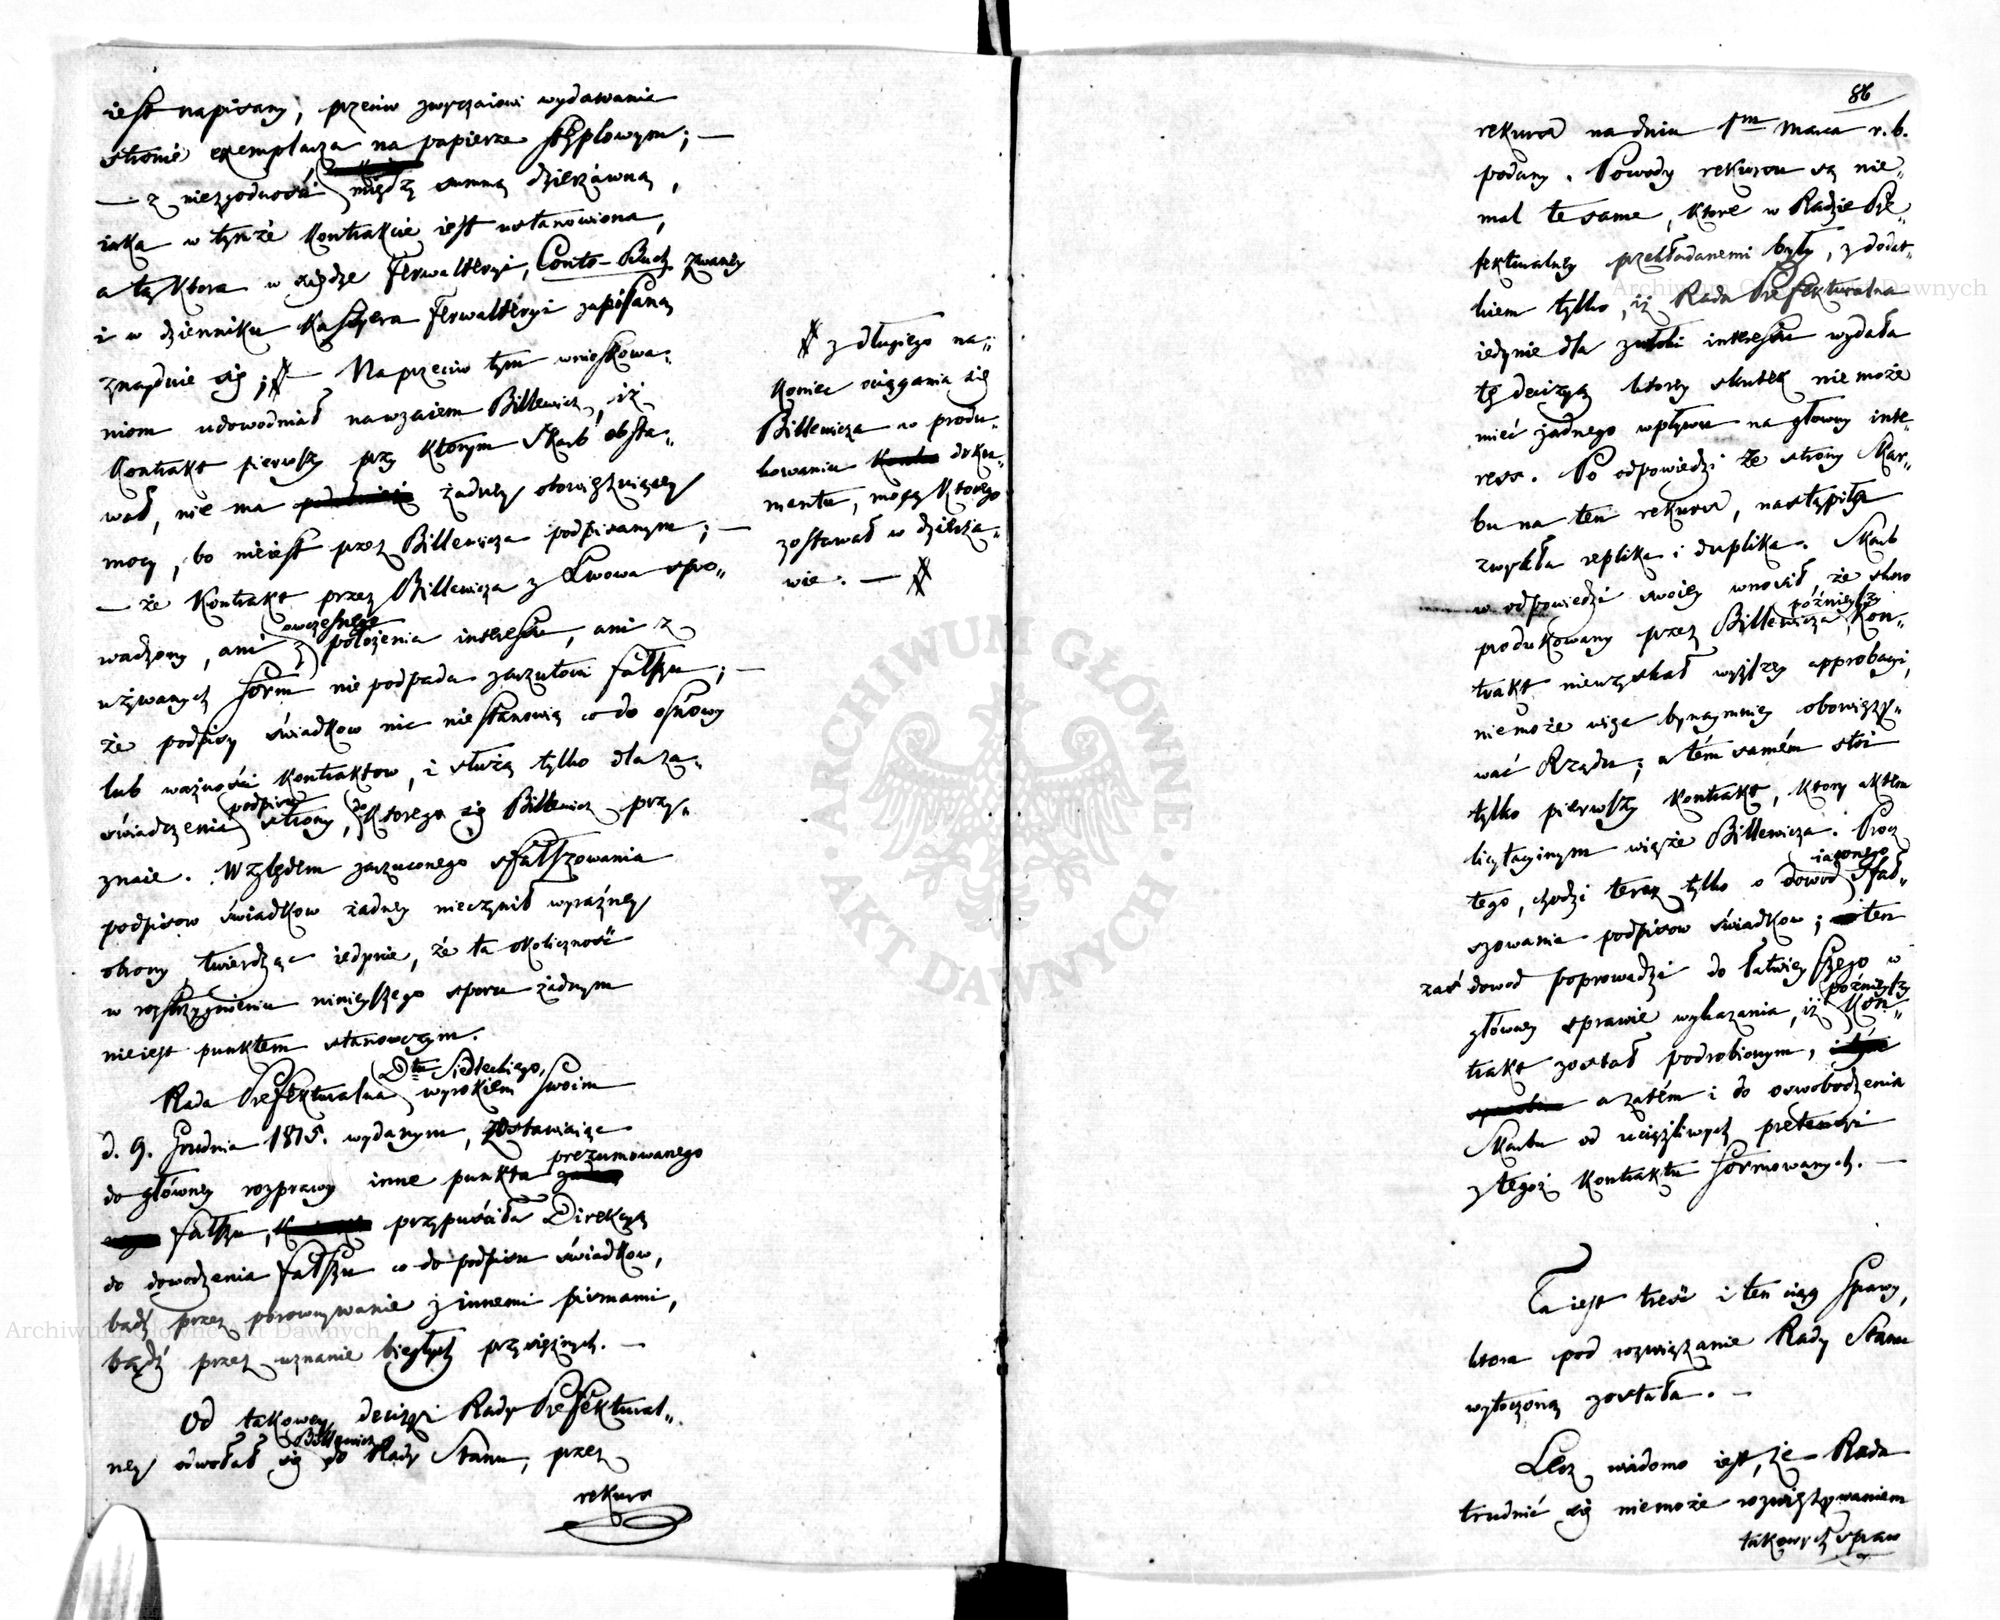 iest napisany, przeciw zwyczaiowi wydawania
stronie exemplarza na papierze stęplowym; —
— z niezgodności między summą dzierżawną,
iaka w tymże Kontrakcie iest ustanowiona,
a tą, Ktora w xiędze Ferwalteryi, Conto-Buch zwaney
i w dzienniku Kassyera Ferwalteryi zapisaną
znayduie się; # — Naprzeciw tym wnioskowa„
niom udowodniał nawzaiem Billewicz, iż
Kontrakt pierwszy przy Ktorym Skarb obsta„
wał, nie ma żadney obowiązuiącey
mocy, bo nieiest przez Billewicza podpisanym; —
— że Kontrakt przez Billewicza z Lwowa spro„
wadzony, ani z owczesnego położenia interessu, ani z
używanych form nie podpada zarzutowi fałszu; —
że podpisy świadkow nic nie stanowią co do osnowy
lub ważności Kontraktow, i służą tylko dla za„
świadczenia podpisu strony, do Ktorego się Billewicz przy„
znaie. Względem zarzuconego sfałszowania
podpisow świadkow żadney nieczynił wyraźney
obrony, twierdząc iedynie, że ta okoliczność
w rozstrzygnieniu ninieyszego sporu żadnym
nieiest punktem stanowczym.
Rada Prefekturalna Dtu Siedleckiego, wyrokiem swoim
d. 9. Grudnia 1815. wydanym, zostawiaiąc
do główney rozprawy inne punkta prezumowanego
fałszu, przypuściła Direkcyą
do dowodzenia fałszu co do podpisu świadkow,
bądź przez porownywanie z innemi pismami,
bądź przez uznanie biegłych przysięznych. —
Od takowey decizyi Rady Prefektural„
ney odwołał się Billewicz do Rady Stanu, przez
rekurs
# z długiego na„
Koniec ociągania się
Billewicza w produ„
kowaniu doku„
mentu, mocą Ktorego
zostawał w dzierża„
wie. — #
86
rekurs na dniu 1m Marca r. b.
podany. Powody rekursu są nie„
mal te same, Ktore w Radzie Pre„
fekturalney przekładanemi były, z dodat„
kiem tylko, iż Rada Prefekturalna
iedynie dla zwłoki interessu wydała
tę decizyą ktorey skutek niemoże
mieć żadnego wpływu na głowny inte„
ress. Po odpowiedzi ze strony Skar„
bu na ten rekurs, nastąpiła
zwykła replika i duplika. Skarb
w odpowiedzi swoiey wnosił, że skoro
produkowany przez Billewicza późnieyszy Kon„
trakt nieuzyskał wyższey approbacyi,
niemoże więc bynaymniey obowięzy„
wać Rządu; a tém samém stoi
tylko pierwszy Kontrakt, Ktory aktem
licytacyinym wiąże Billewicza. Procz
tego, chodzi teraz tylko o dowod iasnego sfał„
szowania podpisow świadkow; ten
zaś dowod poprowadzi do łatwieyszego w
główney sprawie wykazania, iż późnieyszy Kon„
trakt został podrobionym,
a zatém i do oswobodzenia
Skarbu od uciążliwych pretensyi
z tegoż Kontraktu formowanych. —
Ta iest treść i ten ciąg sprawy,
ktora pod rozwiązanie Rady Stanu
wytoczoną została. —
Lecz wiadomo iest, że Rada
trudnić się niemoże rozwiązywaniem
takowych spraw
ARCHIWUM GŁÓWNE AKT DAWNYCH
Archiwum Główne Akt Dawnych
Archiwum Główne Akt Dawnych